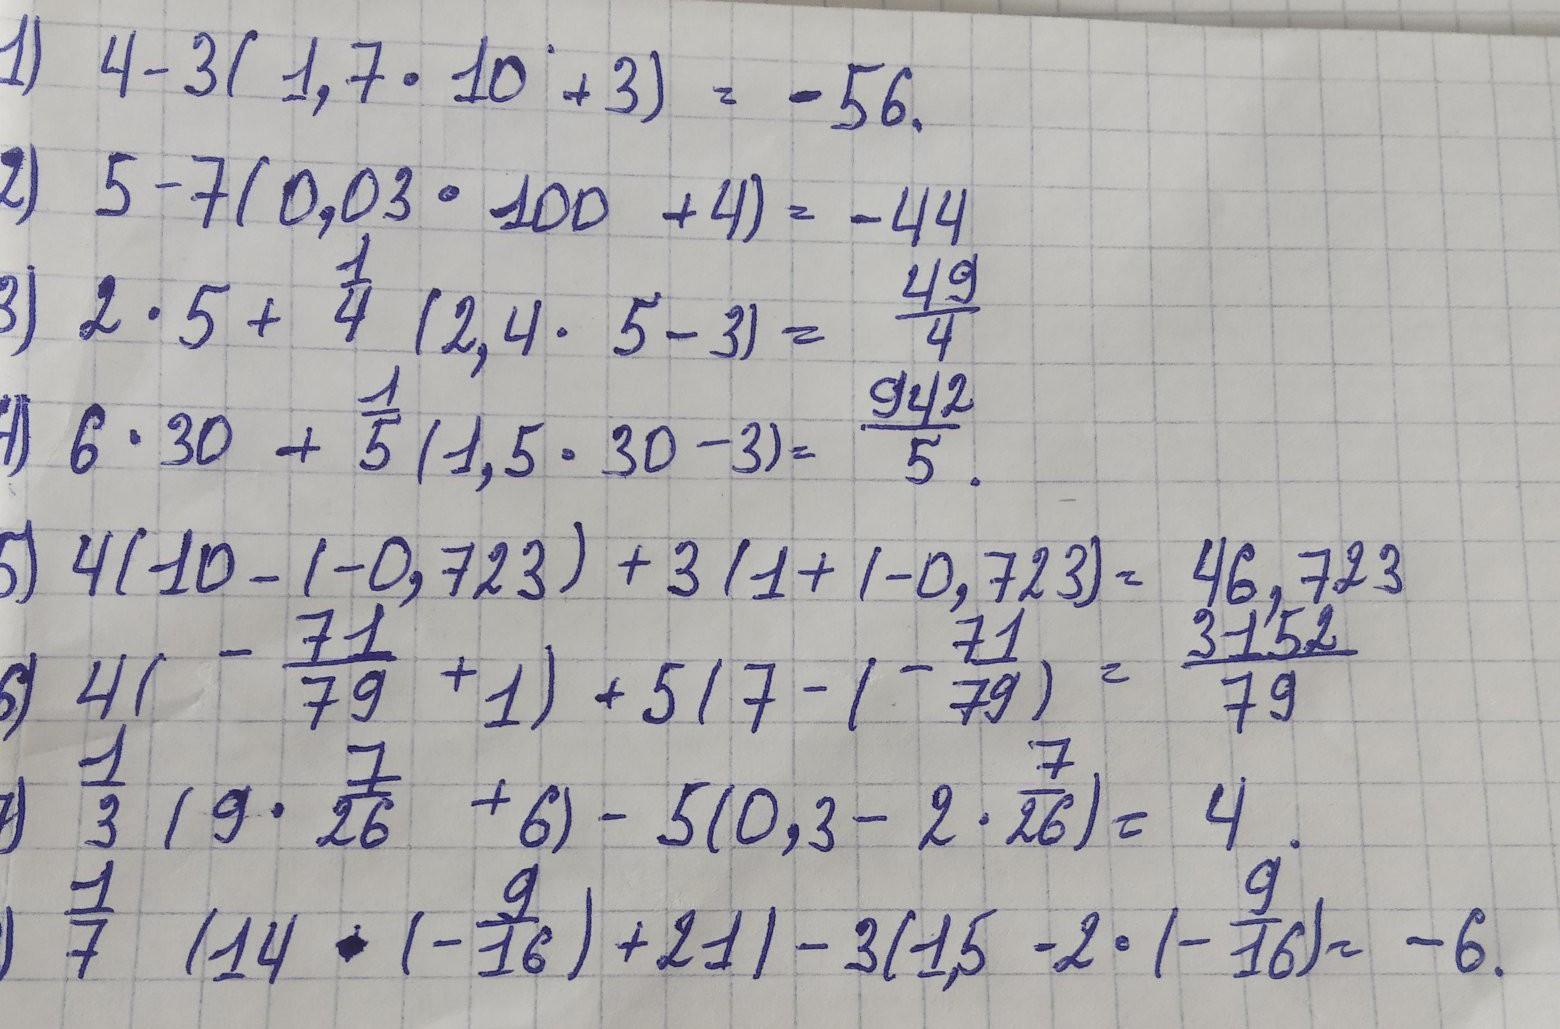 1) 4-3(1,7·10+3) = -56.
2) 5-7(0,03·100+4) = -44
3) 2·5+1/4(2,4·5-3) = 49/4
4) 6·30+1/5(1,5·30-3) = 942/5.
5) 4(10-(-0,723)+3(1+(-0,723) = 46,723
6) 4(-71/79+1)+5(7-(-71/79) = 3152/79
7) 1/3(9·7/26+6)-5(0,3-2·7/26) = 4.
) 1/7(14·(-9/16)+21)-3(1,5-2·(-9/16) = -6.